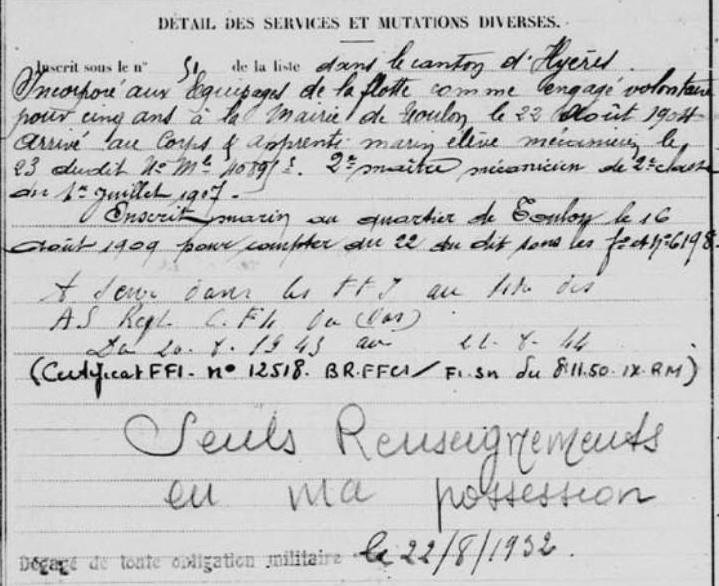 DÉTAIL DES SERVICES ET MUTATIONS DIVERSES.
Inscrit sous le n° 51 de la liste dans le canton d'Hyères.
Incorporé aux Equipages de la flotte comme engagé volontaire
pour cinq ans à la Mairie de Toulon le 22 Août 1904
Arrivé au Corps & apprenti marin élève mécanicien le
23 dudit N° Mle 2e maître mécanicien de 2e classe
du 1er Juillet 1907.
Inscrit marin au quartier de Toulon le 16
Août 1909 pour compter du 22 du dit sous les
A Servi dans les FFI au titre des
AS (Var)
Du 20.8.1943 au 22.8.44
(Certificat FFI. n° 12518. BR.FFCI/ du 8.11.50. IX.RM)
Seuls Renseignements
en ma possession
Dégagé de toute obligation militaire le 22/8/1932.